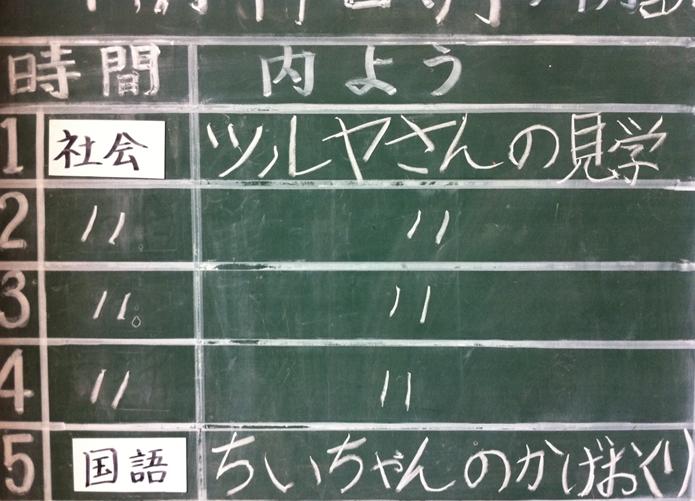 時間 内よう
1 社会 ツルヤさんの見学
2 〃 〃
3 〃 〃
4 〃 〃
5 国語 ちいちゃんのかげおくり